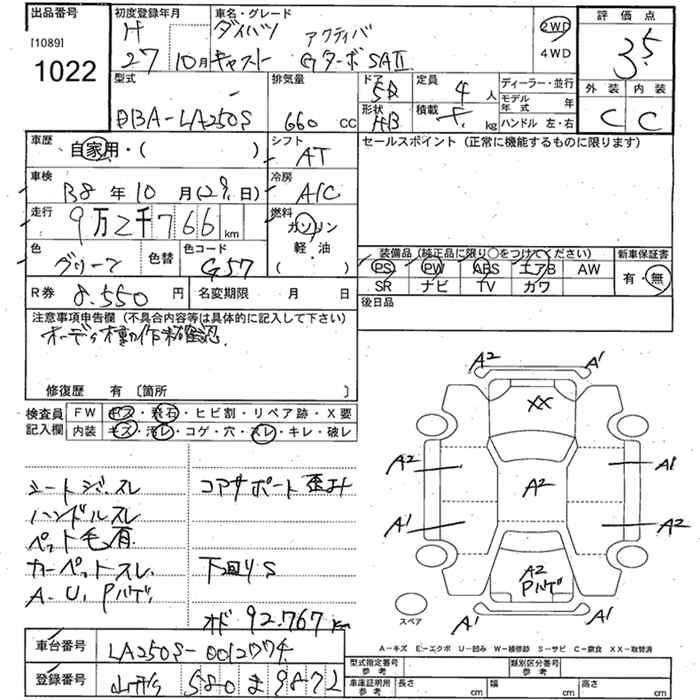 出品番号 初度登録年月 車名・グレード 評価点
[1089] H ダイハツ アクティバ 2WD 3.5
1022 27 10月 キャスト Gターボ SAⅡ 4WD
型式 排気量 ドア 5D 定員 4人 ディーラー・並行 外装 内装
DBA-LA250S 660 CC 形状 HB 積載 kg モデル年式 年 C C
ハンドル 左・右
車歴 自家用・( ) シフト AT セールスポイント(正常に機能するものに限ります)
車検 R8年10月(29日) 冷房 A/C
走行 9万2千766km 燃料 ガソリン
軽・油
( )
色 グリーン 色替 色コード G57 装備品(純正品に限り○をつけてください) 新車保証書
PS PW ABS エアB AW 有・無
SR ナビ TV カワ
R券 8,550円 名変期限 月 日 後日品
注意事項申告欄(不具合内容等は具体的に記入して下さい)
オーディオ種動作未確認
修復歴 有〔箇所
検査員 FW キズ・飛石・ヒビ割・リペア跡・X要
記入欄 内装 キズ・汚レ・コゲ・穴・スレ・キレ・破レ
A2 A1
XX
A2 A1
A2
A1 A2
A2
Pハゲ
A1 A1
スペア
シートジミ.スレ コアサポート歪ミ
ハンドルスレ
ペット毛有
カーペットスレ 下廻りS
A.U.Pハゲ
オド 92,767km
A-キズ E-エクボ U-凹み W-補修跡 S-サビ C-腐食 XX-取替済
車台番号 LA250S-0012774 型式指定番号 参考 類別区分番号 参考
登録番号 山形 580 ま 9872 車庫証明用 参考 長さ cm 幅 cm 高さ cm